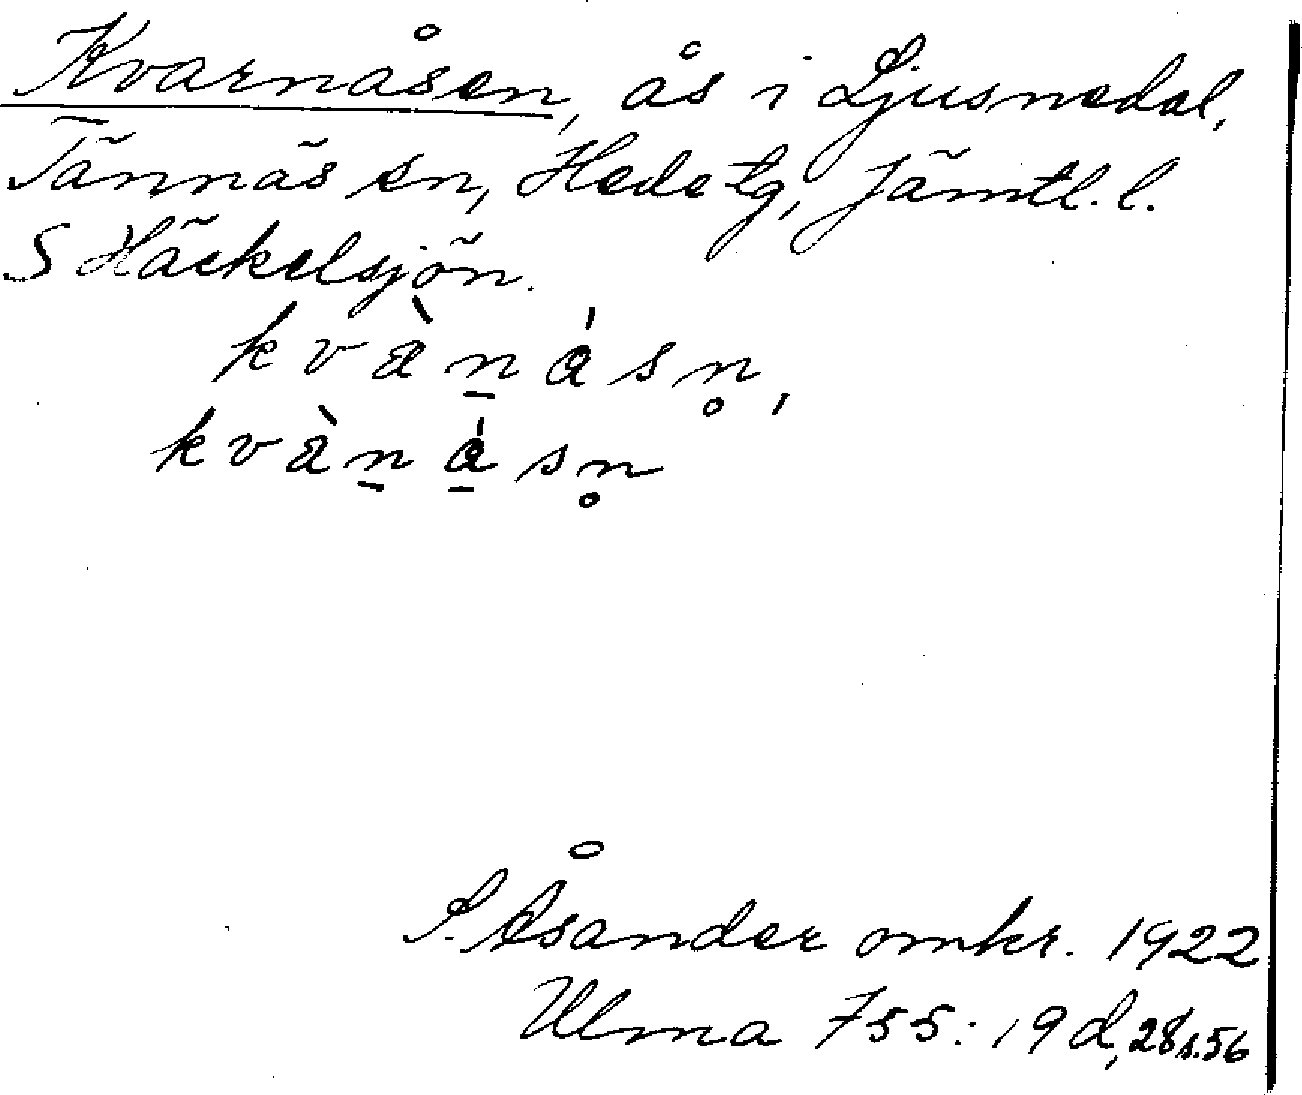 Kvarnåsen, ås i Ljusnedal,
Tännäs sn, Hede tg, Jämtl. l.
S Häckelsjön.
kvàn̠ásn̥,
kvàn̠á̠sn̥
S. Åsander omkr. 1922
Ulma 755: 19 d, 28 s. 56